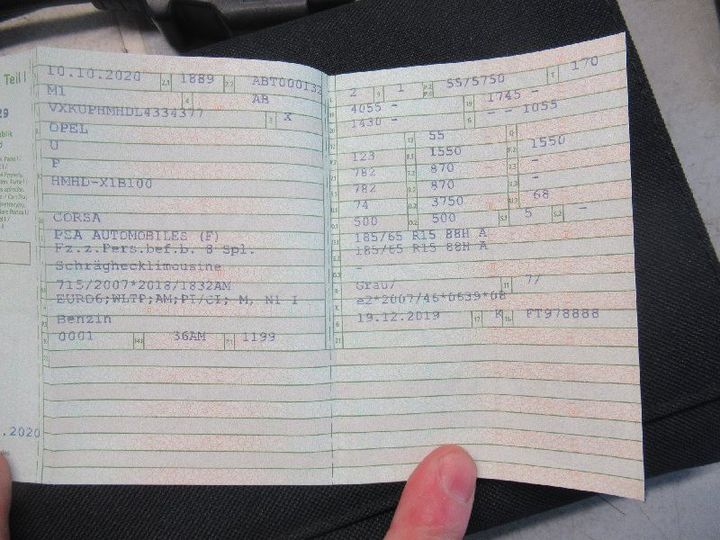 Teil I
10.10.2020 1889 ABT000132
M1 AB
VXKUPHMHDL4334377 X
OPEL
U
P
HMHD-X1B100
CORSA
PSA AUTOMOBILES (F)
Fz.z.Pers.bef.b. 8 Spl.
Schräghecklimousine
715/2007*2018/1832AM
EURO6;WLTP;AM;PI/CI; M, N1 I
Benzin
0001 36AM 1199
.2020
2 1 55/5750 170
4055 - 1745 -
1430 - - - 1055
55
123 1550 1550
782 870 -
782 870 -
74 3750 68
500 500 5 -
185/65 R15 88H A
185/65 R15 88H A
-
Grau/ 7/
e2*2007/46*0639*08
19.12.2019 K FT978888